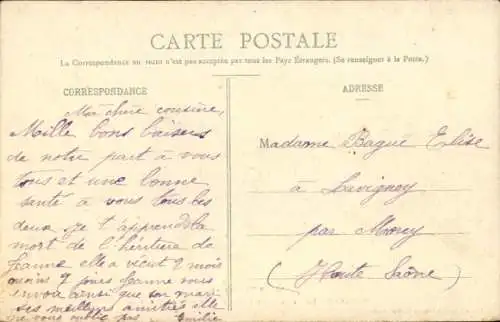 CARTE POSTALE
La Correspondance au recto n'est pas acceptée par tous les Pays Étrangers. (Se renseigner à la Poste.)
CORRESPONDANCE
Ma chère cousine,
Mille bons baisers
de notre part à vous
tous et une bonne
santé à vous tous les
deux je t'apprends la
mort de l'héritière de
Jeanne elle a vécut 2 mois
moins 7 jours Jeanne vous
envoie ainsi que son mari
ses meilleurs amitiés elle
ne vous oublie pas Emilie
ADRESSE
Madame Bague Elise
à Lavigney
par Molay
(Haute Saône)